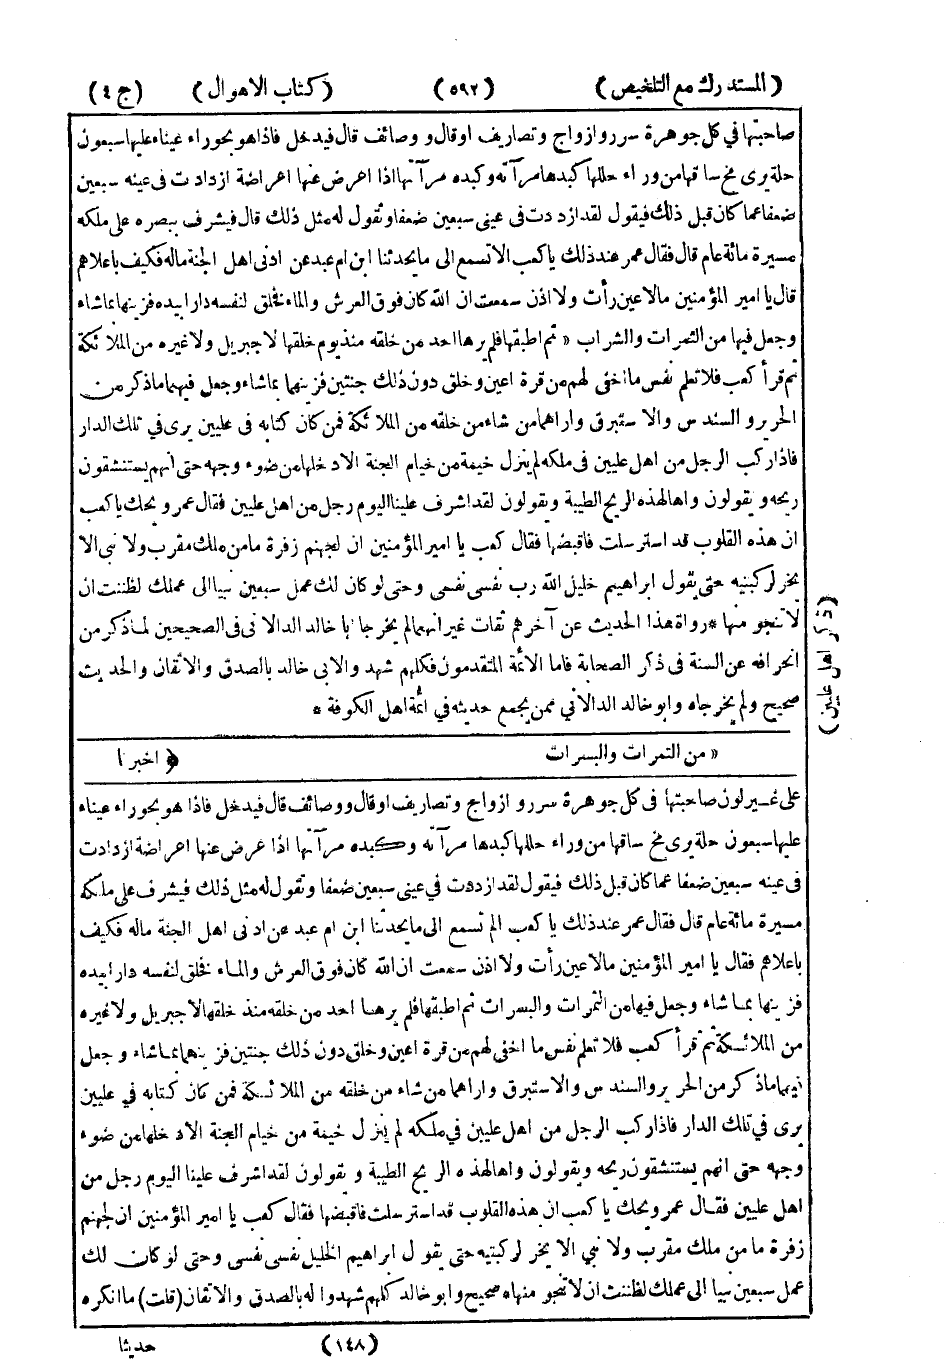 (المستدرك مع التلخيص) (٥٩٢) (كتاب الاهوال) (ج ٤)
صاحبتها في كل جوهرة سرر وازواج وتصاريف اوقال ووصائف قال فيدخل فاذا هو بحوراء عيناء عليها سبعون
حلة يرى مخ ساقها من وراء حللها كبدها مرآته وكبده مرآتها اذا اعرض عنها اعراضة ازدادت فى عينه سبعين
ضعفا عما كان قبل ذلك فيقول لقد ازددت فى عينى سبعين ضعفا وتقول له مثل ذلك قال فيشرف ببصره على ملكه
مسيرة مائة عام قال فقال عمر عند ذلك يا كعب الا تسمع الى ما يحدثنا ابن ام عبد عن ادنى اهل الجنة ماله فكيف باعلاهم
قال يا امير المؤمنين مالا عين رأت ولا اذن سمعت ان الله كان فوق العرش والماء فخلق لنفسه دارا بيده فزينها بماشاء
وجعل فيها من الثمرات والشراب « ثم اطبقها فلم يرها احد من خلقه منذ يوم خلقها لا جبريل ولا غيره من الملائكة
ثم قرأ كعب فلا تعلم نفس ما اخفى لهم من قرة اعين وخلق دون ذلك جنتين فزينهما بماشاء وجعل فيهما ما ذكر من
الحرير والسندس والاستبرق واراهما من شاء من خلقه من الملائكة فمن كان كتابه فى عليين يرى في تلك الدار
فاذا ركب الرجل من اهل عليين فى ملكه لم ينزل خيمة من خيام الجنة الا دخلها من ضوء وجهه حتى انهم يستنشقون
ريحه ويقولون واها لهذه الريح الطيبة ويقولون لقد اشرف علينا اليوم رجل من اهل عليين فقال عمر ويحك يا كعب
ان هذه القلوب قد استرسلت فاقبضها فقال كعب يا امير المؤمنين ان لجهنم زفرة ما من ملك مقرب ولا نبى الا
يخر لركبتيه حتى يقول ابراهيم خليل الله رب نفسى نفسى وحتى لو كان لك عمل سبعين نبيا الى عملك لظننت ان
لا تنجو منها * رواة هذا الحديث عن آخرهم ثقات غير انهما لم يخرجا ابا خالد الدالانى فى الصحيحين لما ذكر من
انحرافه عن السنة فى ذكر الصحابة فاما الائمة المتقدمون فكلهم شهد والابى خالد بالصدق والاتقان والحديث
صحيح ولم يخرجاه وابو خالد الدالاني ممن يجمع حديثه في ائمة اهل الكوفة *
(ذكر اهل عليين)
« من الثمرات والبسرات ﴿ اخبرنا
على غير لون صاحبتها فى كل جوهرة سرر وازواج وتصاريف اوقال ووصائف قال فيدخل فاذا هو بحوراء عيناء
عليها سبعون حلة يرى مخ ساقها من وراء حللها كبدها مرآته وكبده مرآتها اذا عرض عنها اعراضة ازدادت
فى عينه سبعين ضعفا عما كان قبل ذلك فيقول لقد ازددت في عينى سبعين ضعفا وتقول له مثل ذلك فيشرف على ملكه
مسيرة مائة عام قال فقال عمر عند ذلك يا كعب الم تسمع الى ما يحدثنا ابن ام عبد عن ادنى اهل الجنة ماله فكيف
باعلاهم فقال يا امير المؤمنين مالا عين رأت ولا اذن سمعت ان الله كان فوق العرش والماء فخلق لنفسه دارا بيده
فزينها بما شاء وجعل فيها من الثمرات والبسرات ثم اطبقها فلم يرها احد من خلقه منذ خلقها لا جبريل ولا غيره
من الملائكة ثم قرأ كعب فلا تعلم نفس ما اخفى لهم من قرة اعين وخلق دون ذلك جنتين فزينهما بماشاء وجعل
فيهما ما ذكر من الحرير والسندس والاستبرق واراهما من شاء من خلقه من الملائكة فمن كان كتابه في عليين
يرى في تلك الدار فاذا ركب الرجل من اهل عليين في ملكه لم ينزل خيمة من خيام الجنة الا دخلها من ضوء
وجهه حتى انهم يستنشقون ريحه ويقولون واها لهذه الريح الطيبة ويقولون لقد اشرف علينا اليوم رجل من
اهل عليين فقال عمر ويحك يا كعب ان هذه القلوب قد استرسلت فاقبضها فقال كعب يا امير المؤمنين ان لجهنم
زفرة ما من ملك مقرب ولا نبي الا يخر لركبتيه حتى يقول ابراهيم الخليل نفسى نفسى وحتى لو كان لك
عمل سبعين نبيا الى عملك لظننت ان لا تنجو منها ه صحيح وابو خالد كلهم شهدوا له بالصدق والاتقان (قلت) ما انكره
(١٤٨) حديثا